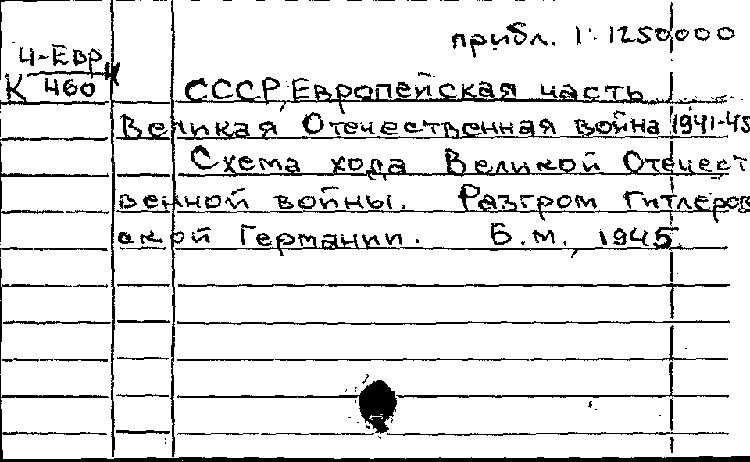 прибл. 1:1250000
4-Евр
К 460
СССР, Европейская часть
Великая Отечественная война 1941-45
Схема хода Великой Отечест
венной войны. Разгром гитлеров
ской Германии. Б.м., 1945.